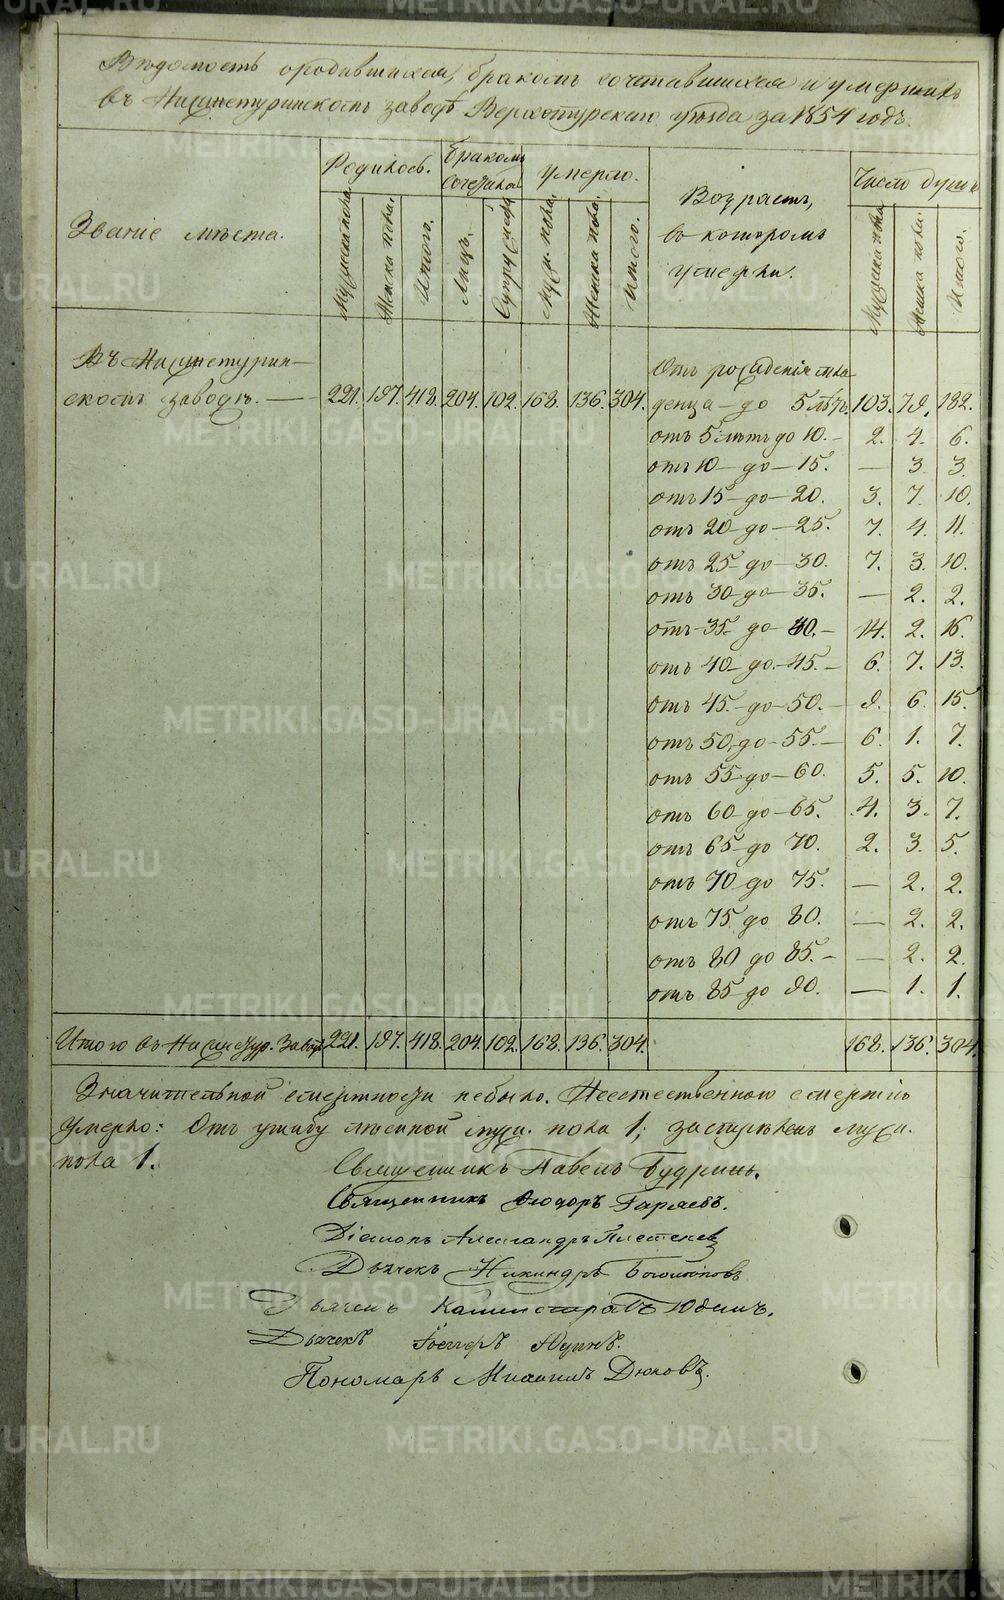 Вѣдомость о родившихся, бракомъ сочетавшихся и умершихъ
въ Нижнетуринскомъ заводѣ Верхотурскаго уѣзда за 1854 годъ.
Званіе мѣста.
Родилось.
Мужска пола.
Женска пола.
Итого.
Бракомъ
сочеталось
Лицъ.
Супружествъ
Умерло.
Муж. пола.
Женска пола.
Итого.
Возрастъ,
въ которомъ
умерли.
Число душъ
Мужска пола
Женска пола.
Итого.
Въ Нижнетурин-
скомъ заводѣ. — 221. 197. 418. 204. 102. 168. 136. 304.
Отъ рожденія мла-
денца — до 5 лѣтъ 103. 79. 182.
отъ 5 лѣтъ до 10. — 2. 4. 6.
отъ 10 — до — 15. — 3. 3.
отъ 15 — до — 20. 3. 7. 10.
отъ 20 — до — 25. 7. 4. 11.
отъ 25 — до — 30. 7. 3. 10.
отъ 30 — до — 35. — 2. 2.
отъ — 35 — до — 40. — 14. 2. 16.
отъ 40 — до — 45. — 6. 7. 13.
отъ 45 — до — 50. — 9. 6. 15.
отъ 50 до — 55. — 6. 1. 7.
отъ 55 — до — 60. 5. 5. 10.
отъ 60 — до — 65. 4. 3. 7.
отъ 65 — до 70. 2. 3. 5.
отъ 70 до 75. — 2. 2.
отъ 75 до 80. — 2. 2.
отъ 80 до 85. — — 2. 2.
отъ 85 — до 90. — 1. 1.
Итого въ Нижнетур. завод. 221. 197. 418. 204. 102. 168. 136. 304. 168. 136. 304.
Значительной смертности небыло. Неестественною смертію
умерло: Отъ ушибу муж. пола 1; застрѣленъ муж.
пола 1.
Священникъ Павелъ Будринъ.
Священникъ Ѳеодоръ Гаряевъ.
Діаконъ Александръ Плетенев
Дьячекъ Никандръ
Дьячекъ Каллистратъ Юдинъ.
Дьячекъ Юдинъ.
Пономарь Михаилъ Дюковъ.
METRIKI.GASO-URAL.RU